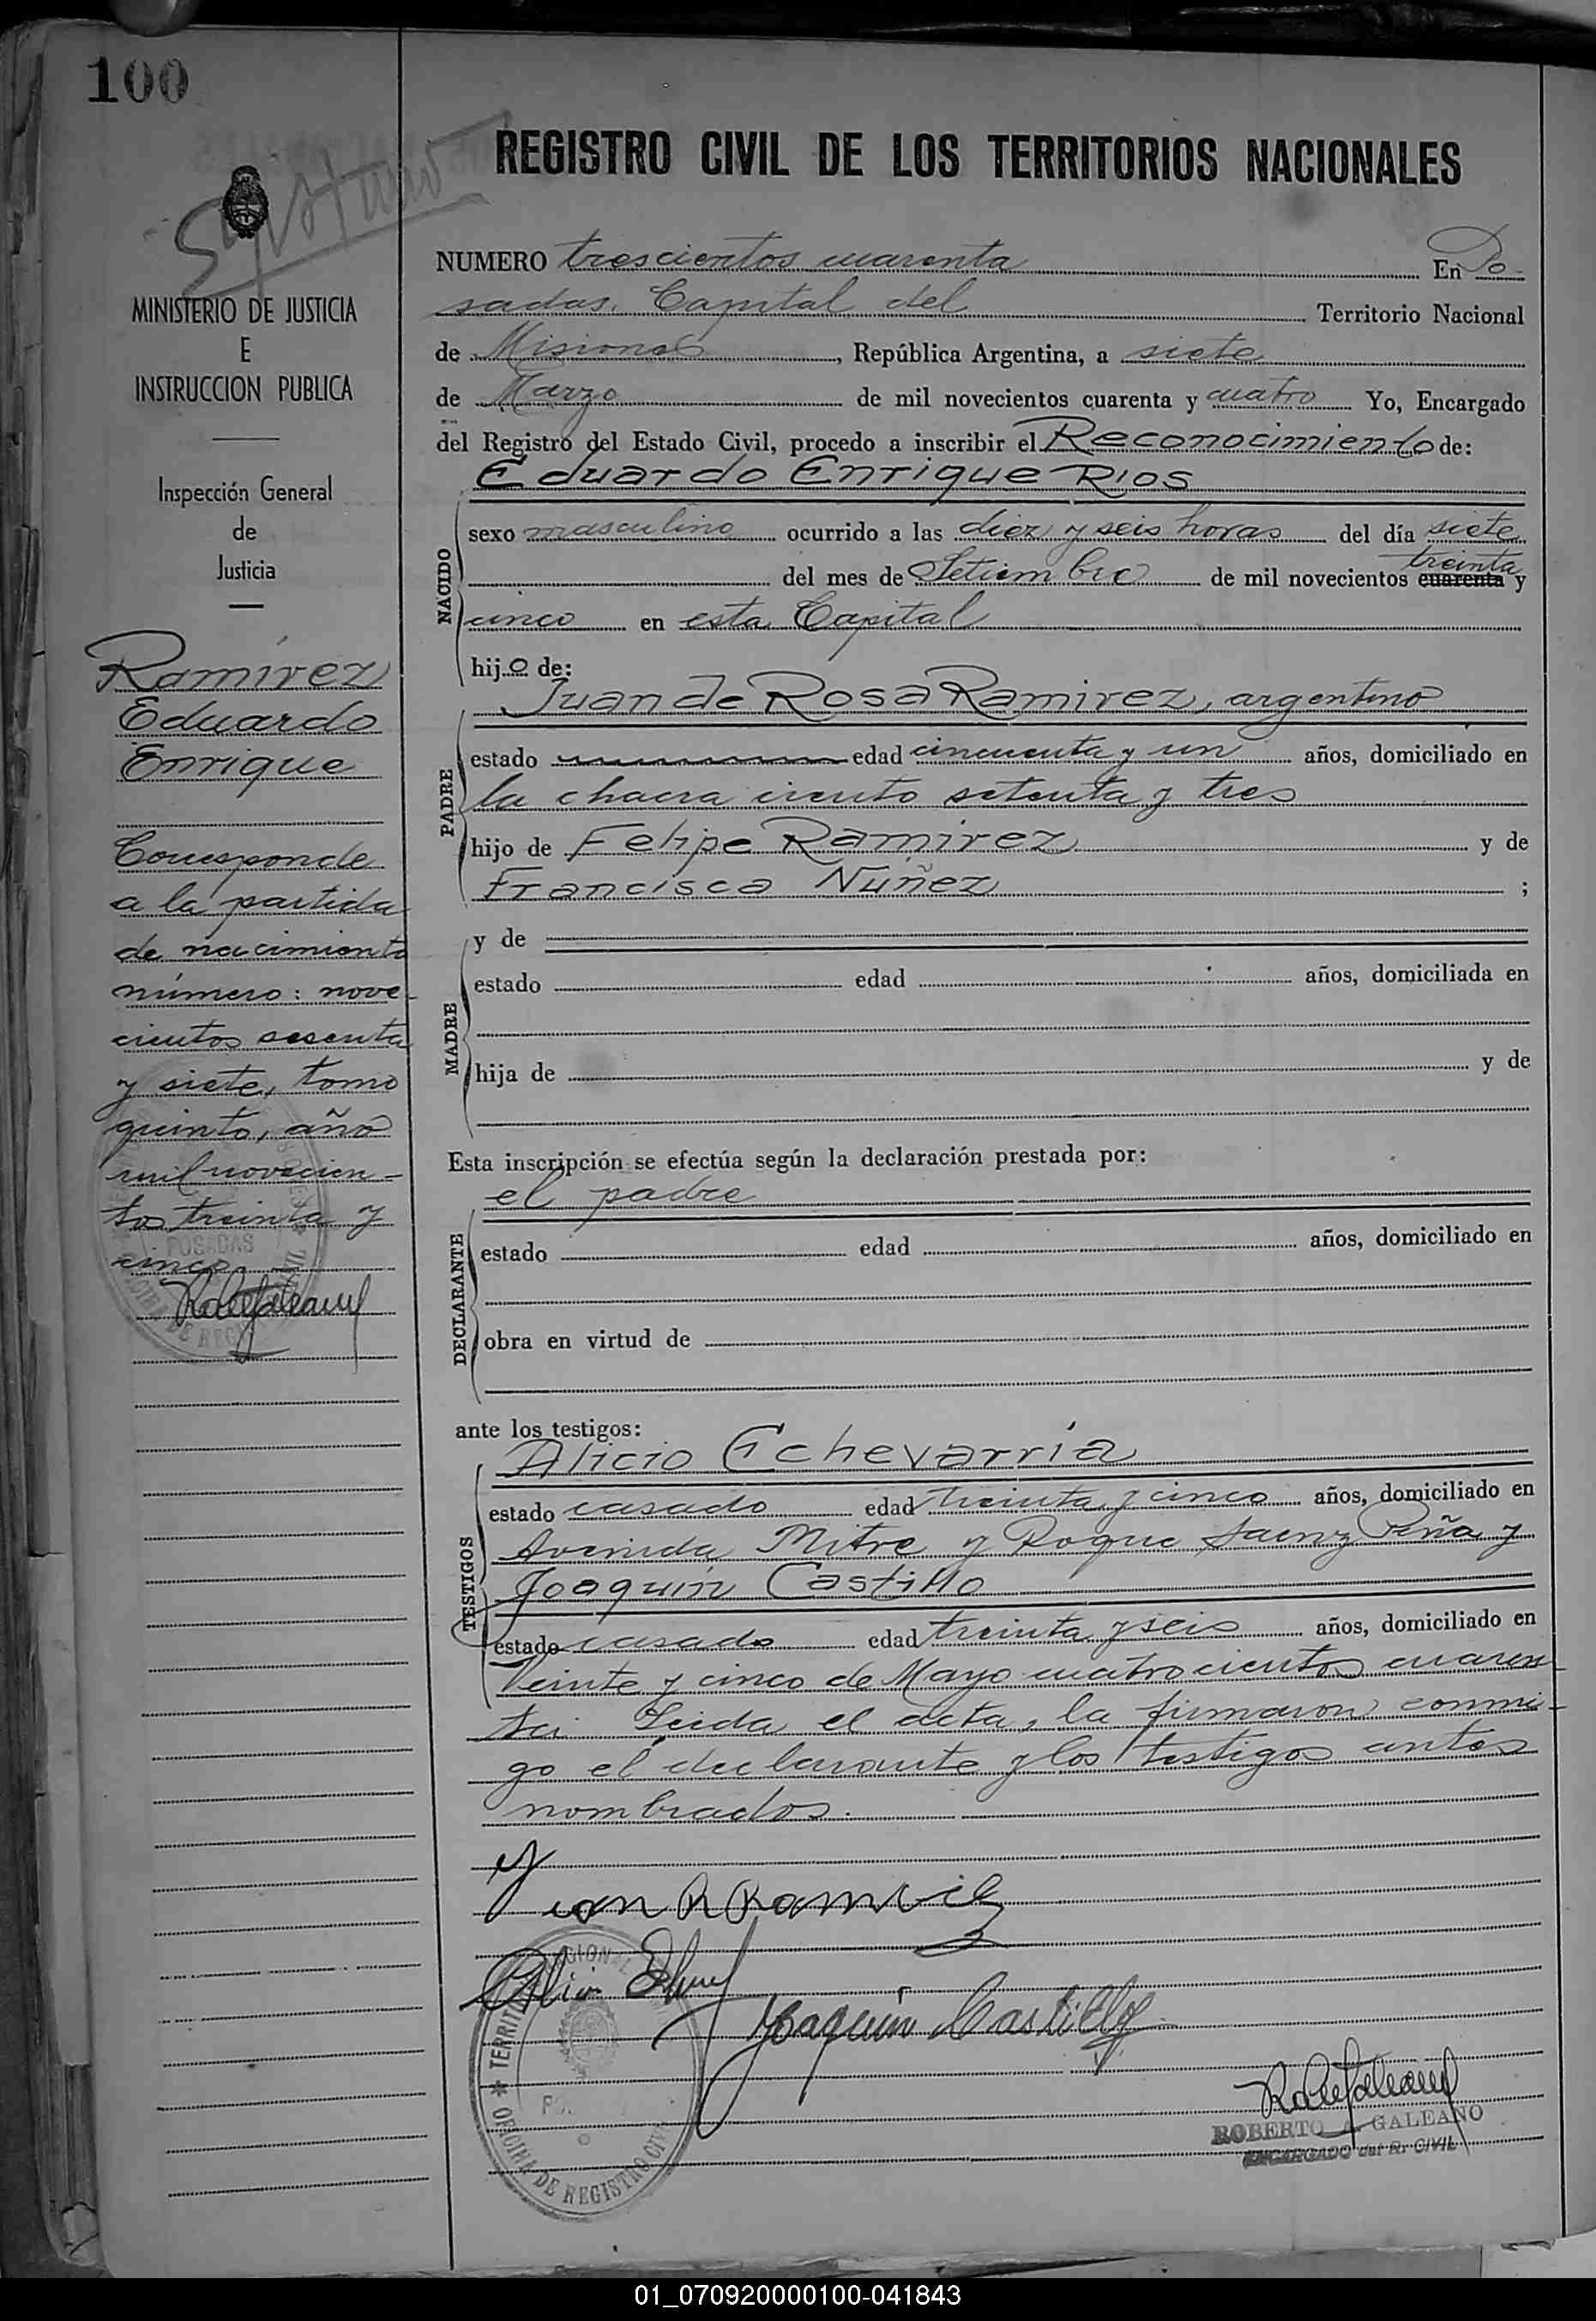 100
REGISTRO CIVIL DE LOS TERRITORIOS NACIONALES
MINISTERIO DE JUSTICIA
E
INSTRUCCION PUBLICA
Inspección General
de
Justicia
Ramírez
Eduardo
Enrique
Corresponde
a la partida
de nacimiento
número: nove-
cientos sesenta
y siete, tomo
quinto, año
mil novecien-
tos treinta y
cinco.
POSADAS
NUMERO trescientos cuarenta En Po-
sadas. Capital del Territorio Nacional
de Misiones, República Argentina, a siete
de Marzo de mil novecientos cuarenta y cuatro Yo, Encargado
del Registro del Estado Civil, procedo a inscribir el Reconocimiento de:
Eduardo Enrique Rios
NACIDO
sexo masculino ocurrido a las diez y seis horas del día siete
treinta
del mes de Setiembre de mil novecientos cuarenta y
cinco en esta Capital
hijo de:
Juan de Rosa Ramirez, argentino
PADRE
estado edad cincuenta y un años, domiciliado en
la chacra ciento setenta y tres
hijo de Felipe Ramirez y de
Francisca Nuñez ;
MADRE
y de
estado edad años, domiciliada en
hija de y de
Esta inscripción se efectúa según la declaración prestada por:
el padre
DECLARANTE
estado edad años, domiciliado en
obra en virtud de
ante los testigos:
Alicio Echevarría
TESTIGOS
estado casado edad treinta y cinco años, domiciliado en
Avenida Mitre y Roque Saenz Peña y
Joaquín Castillo
estado casado edad treinta y seis años, domiciliado en
Veinte y cinco de Mayo cuatrocientos cuaren-
ta. Leida el acta, la firmaron conmi-
go el declarante y los testigos antes
nombrados.
Juan R Ramirez
Joaquín Castillo
OFICINA DE REGISTRO CIVIL
ROBERTO A. GALEANO
ENCARGADO del R. CIVIL
01_070920000100-041843